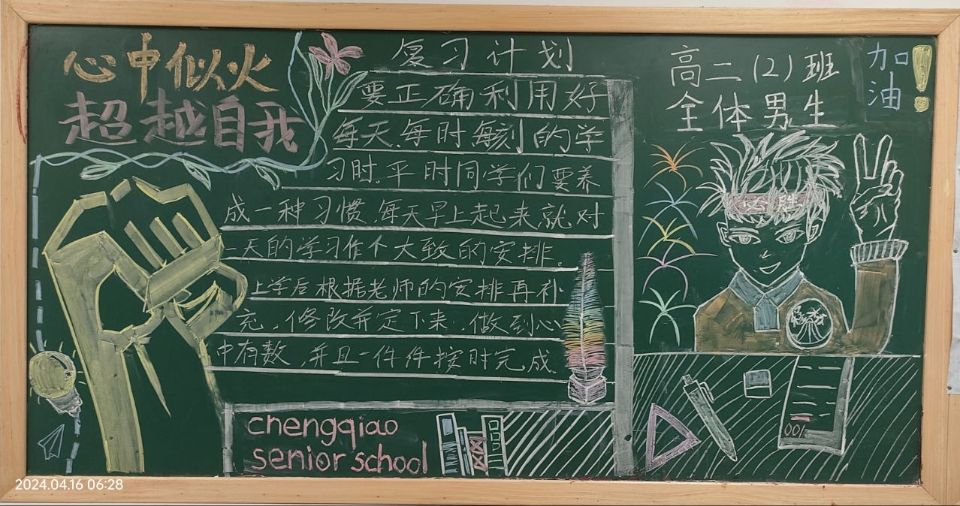 心中似火
超越自我
复习计划
要正确利用好
每天每时每刻的学
习时,平时同学们要养
成一种习惯,每天早上起来就对
一天的学习作个大致的安排。
上学后根据老师的安排再补
充,修改并定下来,做到心
中有数,并且一件件按时完成.
chengqiao
senior school
高二(2)班
全体男生
加油!
必胜
100%
2024.04.16 06:28